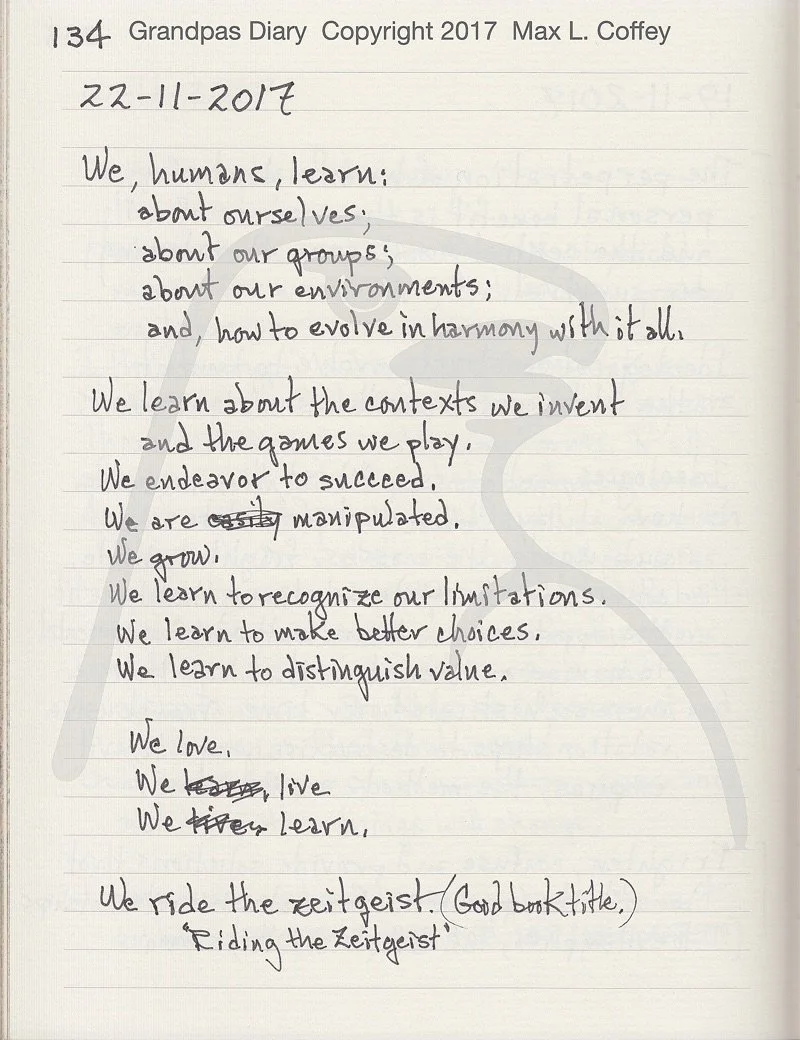 134 Grandpas Diary Copyright 2017 Max L. Coffey
22-11-2017
We, humans, learn:
about ourselves;
about our groups;
about our environments;
and, how to evolve in harmony with it all.
We learn about the contexts we invent
and the games we play.
We endeavor to succeed.
We are easily manipulated.
We grow.
We learn to recognize our limitations.
We learn to make better choices.
We learn to distinguish value.
We love.
We learn, live
We live, learn.
We ride the zeitgeist. (Good book title.)
"Riding the Zeitgeist"